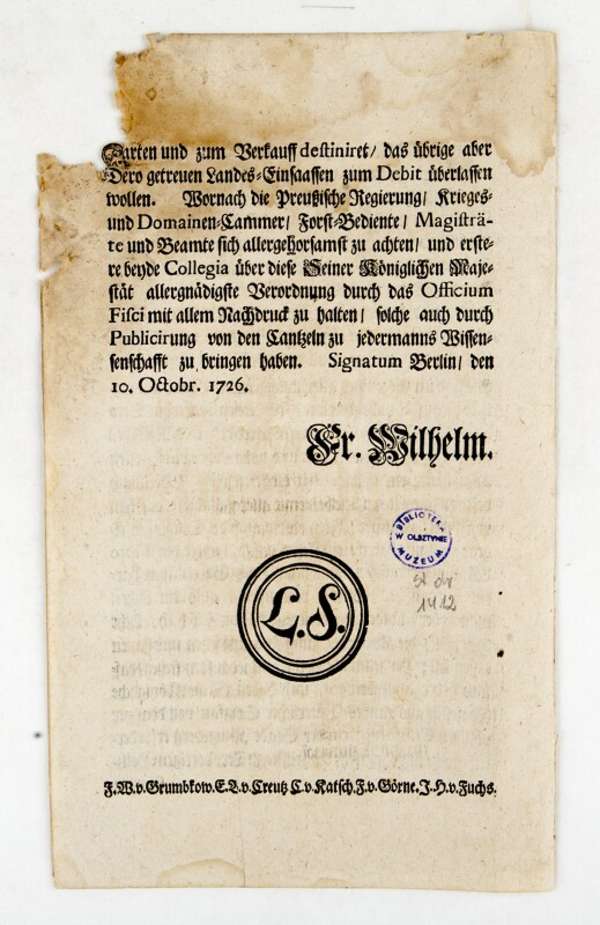 Garten und zum Verkauff destiniret/ das übrige aber
Dero getreuen Landes-Einsaassen zum Debit überlassen
wollen. Wornach die Preußische Regierung/ Krieges-
und Domainen-Cammer/ Forst-Bediente/ Magisträ-
te und Beamte sich allergehorsamst zu achten/ und erste-
re beyde Collegia über diese Seiner Königlichen Maje-
stät allergnädigste Verordnung durch das Officium
Fisci mit allem Nachdruck zu halten/ solche auch durch
Publicirung von den Cantzeln zu jedermanns Wissen-
senschafft zu bringen haben. Signatum Berlin/ den
10. Octobr. 1726.
Fr. Wilhelm.
BIBLIOTEKA
W OLSZTYNIE
MUZEUM
st dr
1412
L. S.
F.W.v.Grumbkow.E.B.v.Creutz C.v.Katsch.F.v.Görne.J.H.v.Fuchs.